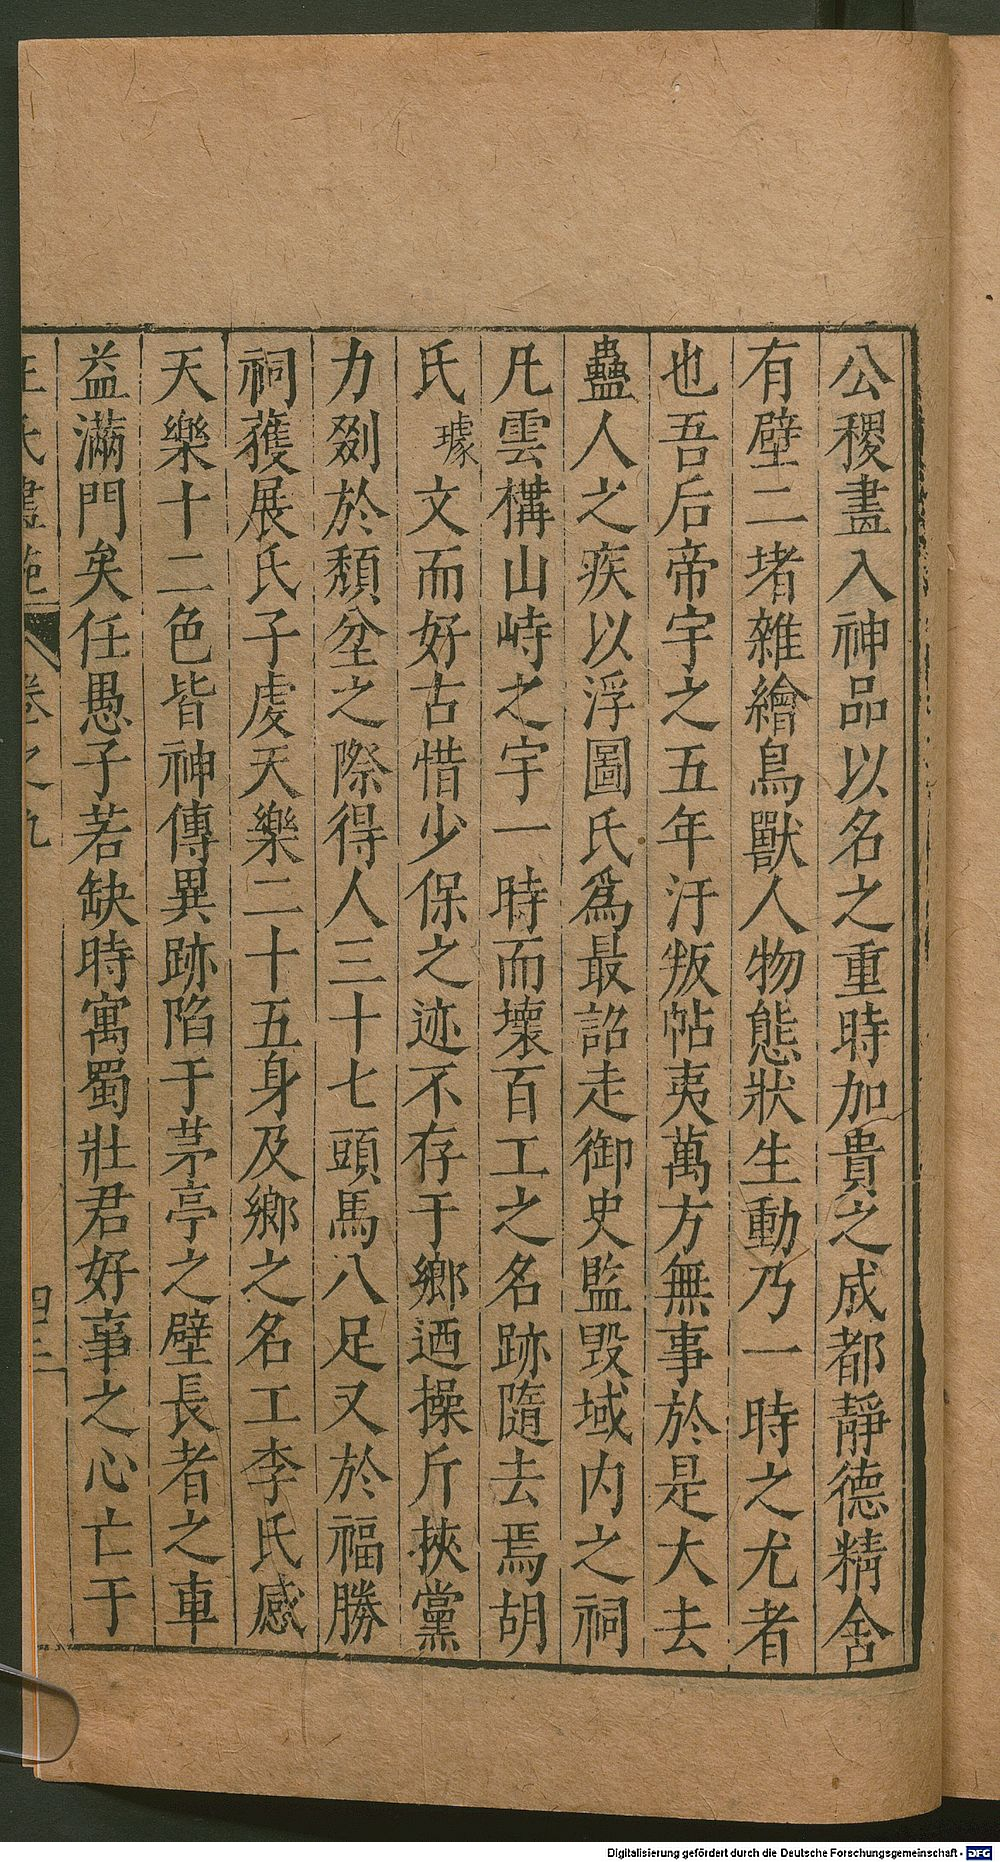 公稷畫入神品以名之重時加貴之成都靜德精舍
有壁二堵雜繪鳥獸人物態狀生動乃一時之尤者
也吾后帝宇之五年汙叛帖夷萬方無事於是大去
蠱人之疾以浮圖氏為最詔走御史監毀域内之祠
凡雲構山峙之宇一時而壞百工之名跡隨去焉胡
氏璩文而好古惜少保之迹不存于鄉迺操斤挾黨
力剟於頹坌之際得人三十七頭馬八足又於福勝
祠獲展氏子虔天樂二十五身及鄉之名工李氏感
天樂十二色皆神傳異跡陷于茅亭之壁長者之車
益滿門矣任愚子若缺時寓蜀壯君好事之心亡于
王氏畫苑 卷之九 四三
Digitalisierung gefördert durch die Deutsche Forschungsgemeinschaft - DFG